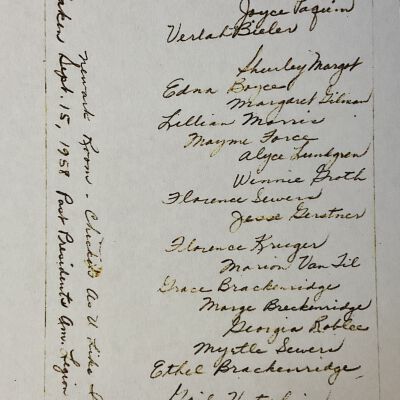 Joyce Paquin
Verlah Bieler
Shirley Margot
Edna Boyce
Margaret Gilman
Lillian Morris
Mayme Force
Alyce Lundgren
Winnie Groth
Florence Sewers
Jesse Gerstner
Florence Krueger
Marion Van Til
Grace Brackenridge
Marge Breckenridge
Georgia Roblee
Myrtle Sewers
Ethel Brackenridge
Newark Room - Chicken As U Like
Taken Sept. 15, 1958 Past Presidents Am. Legion